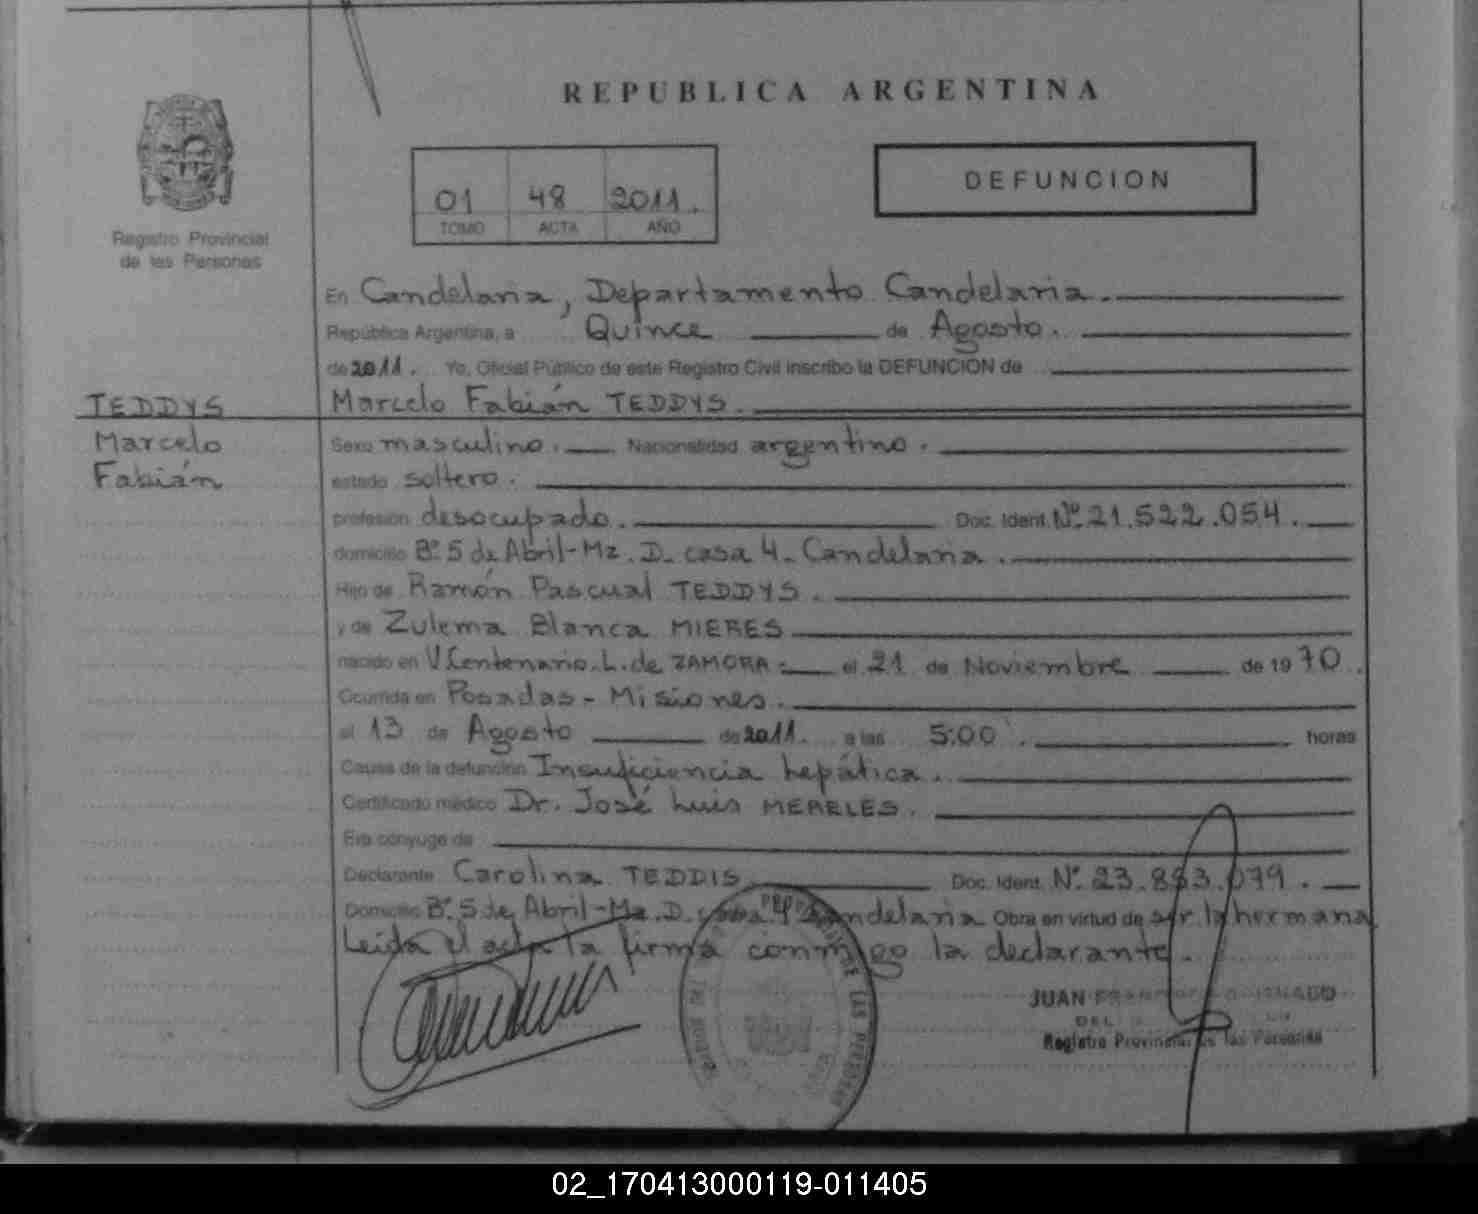 REPUBLICA ARGENTINA
DEFUNCION
01 48 2011.
TOMO ACTA AÑO
Registro Provincial
de las Personas
En Candelaria, Departamento Candelaria.
República Argentina, a Quince de Agosto.
de 2011. Yo, Oficial Público de este Registro Civil inscribo la DEFUNCION de
TEDDYS
Marcelo
Fabián
Marcelo Fabián TEDDYS.
Sexo masculino. Nacionalidad argentino.
estado soltero.
profesión desocupado. Doc. Ident. Nº. 21.522.054.
domicilio Bº. 5 de Abril-Mz. D. casa 4. Candelaria.
Hijo de Ramón Pascual TEDDYS.
y de Zulema Blanca MIERES
nacido en V. Centenario. L. de ZAMORA: el 21 de Noviembre de 1970.
Ocurrida en Posadas - Misiones.
el 13 de Agosto de 2011. a las 5:00 . horas
Causa de la defunción Insuficiencia hepática.
Certificado médico Dr. José Luis MERELES.
Era cónyuge de
Declarante Carolina TEDDIS Doc. Ident. Nº. 23.853.079.
Domicilio Bº. 5 de Abril-Mz. D. casa 4º Candelaria Obra en virtud de ser la hermana
Leida el acta la firma conmigo la declarante.
JUAN
DEL
Registro Provincial de las Personas
LAS PERSONAS
02_170413000119-011405